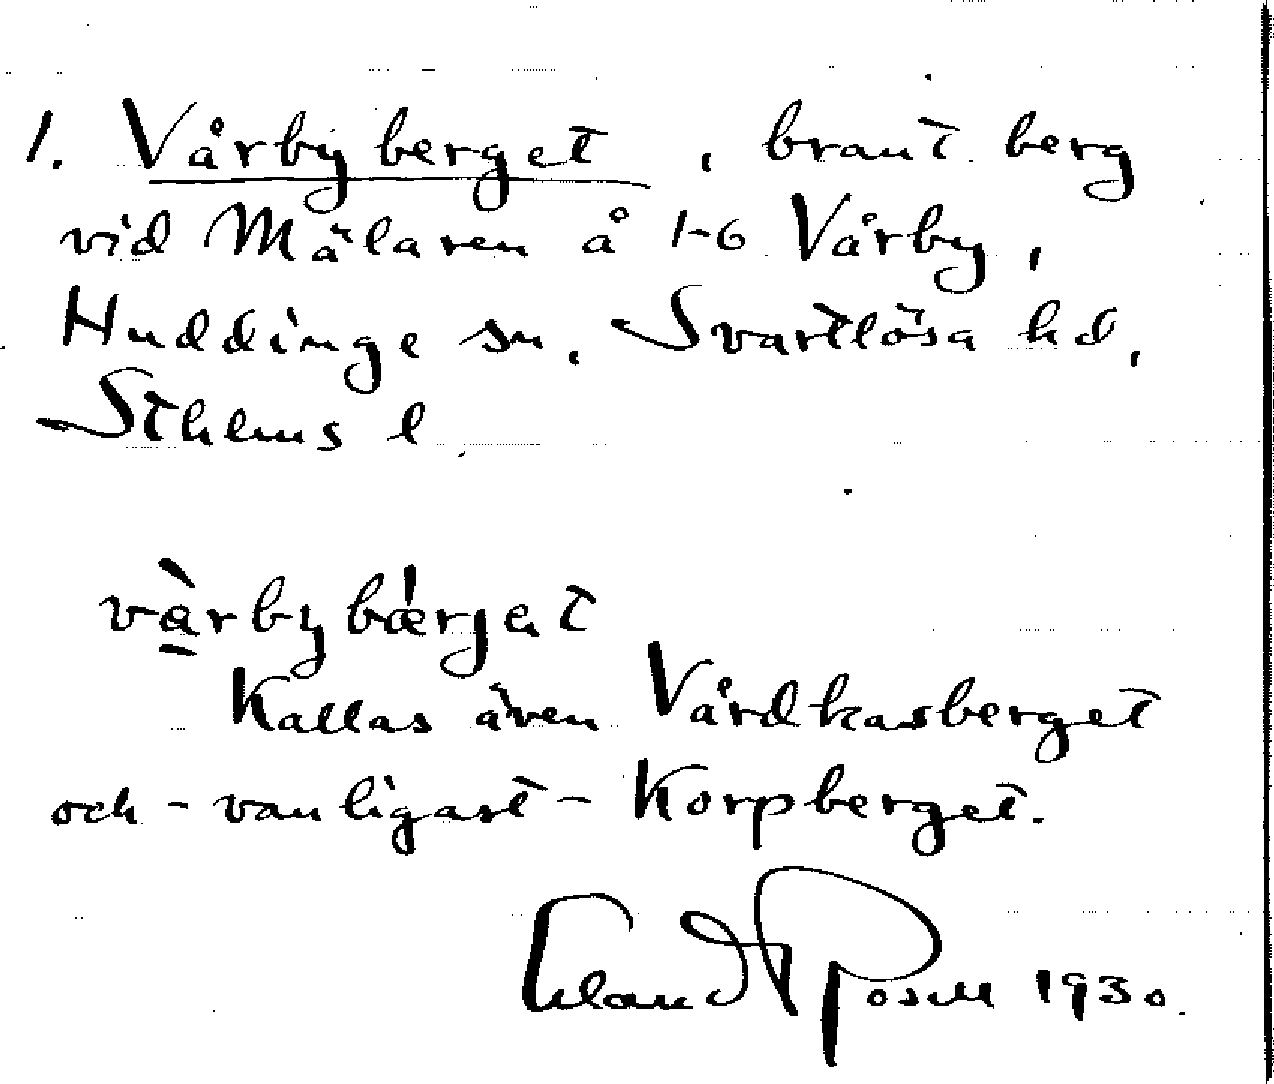 1. Vårbyberget, brant berg
vid Mälaren å 1-6 Vårby,
Huddinge sn. Svartlösa hd,
Sthlms l
vàrbybærjet
Kallas även Vårdkasberget
och - vanligast - Korpberget.
Erland Rosell 1930.